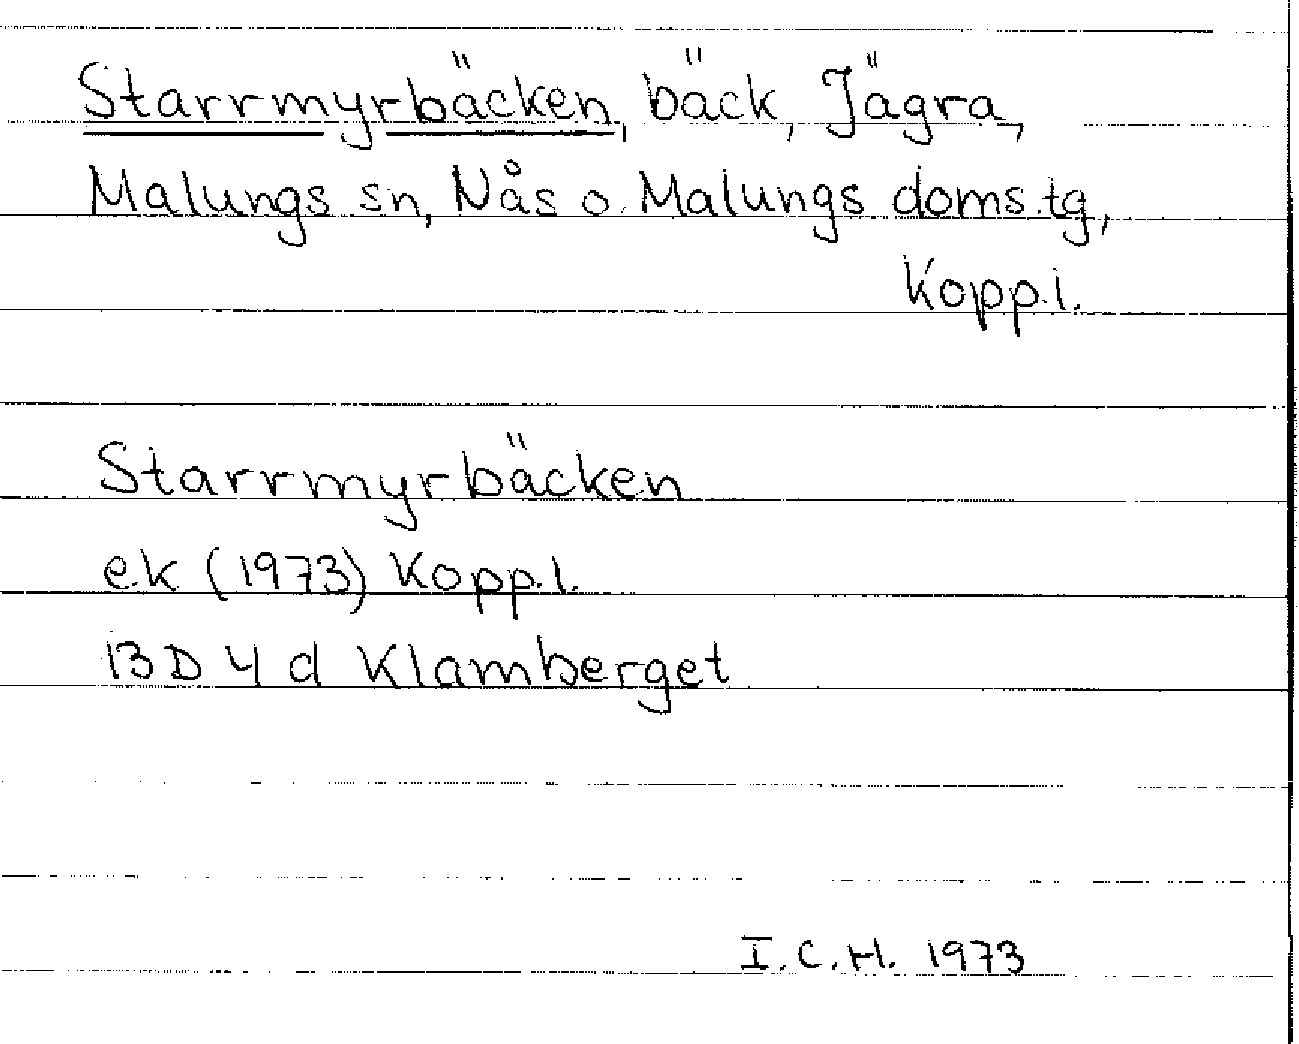 Starrmyrbäcken, bäck, Jägra,
Malungs sn, Nås o. Malungs doms.tg,
Kopp.l.
Starrmyrbäcken
ek (1973) Kopp.l.
13 D 4 d Klamberget
I.C.H. 1973